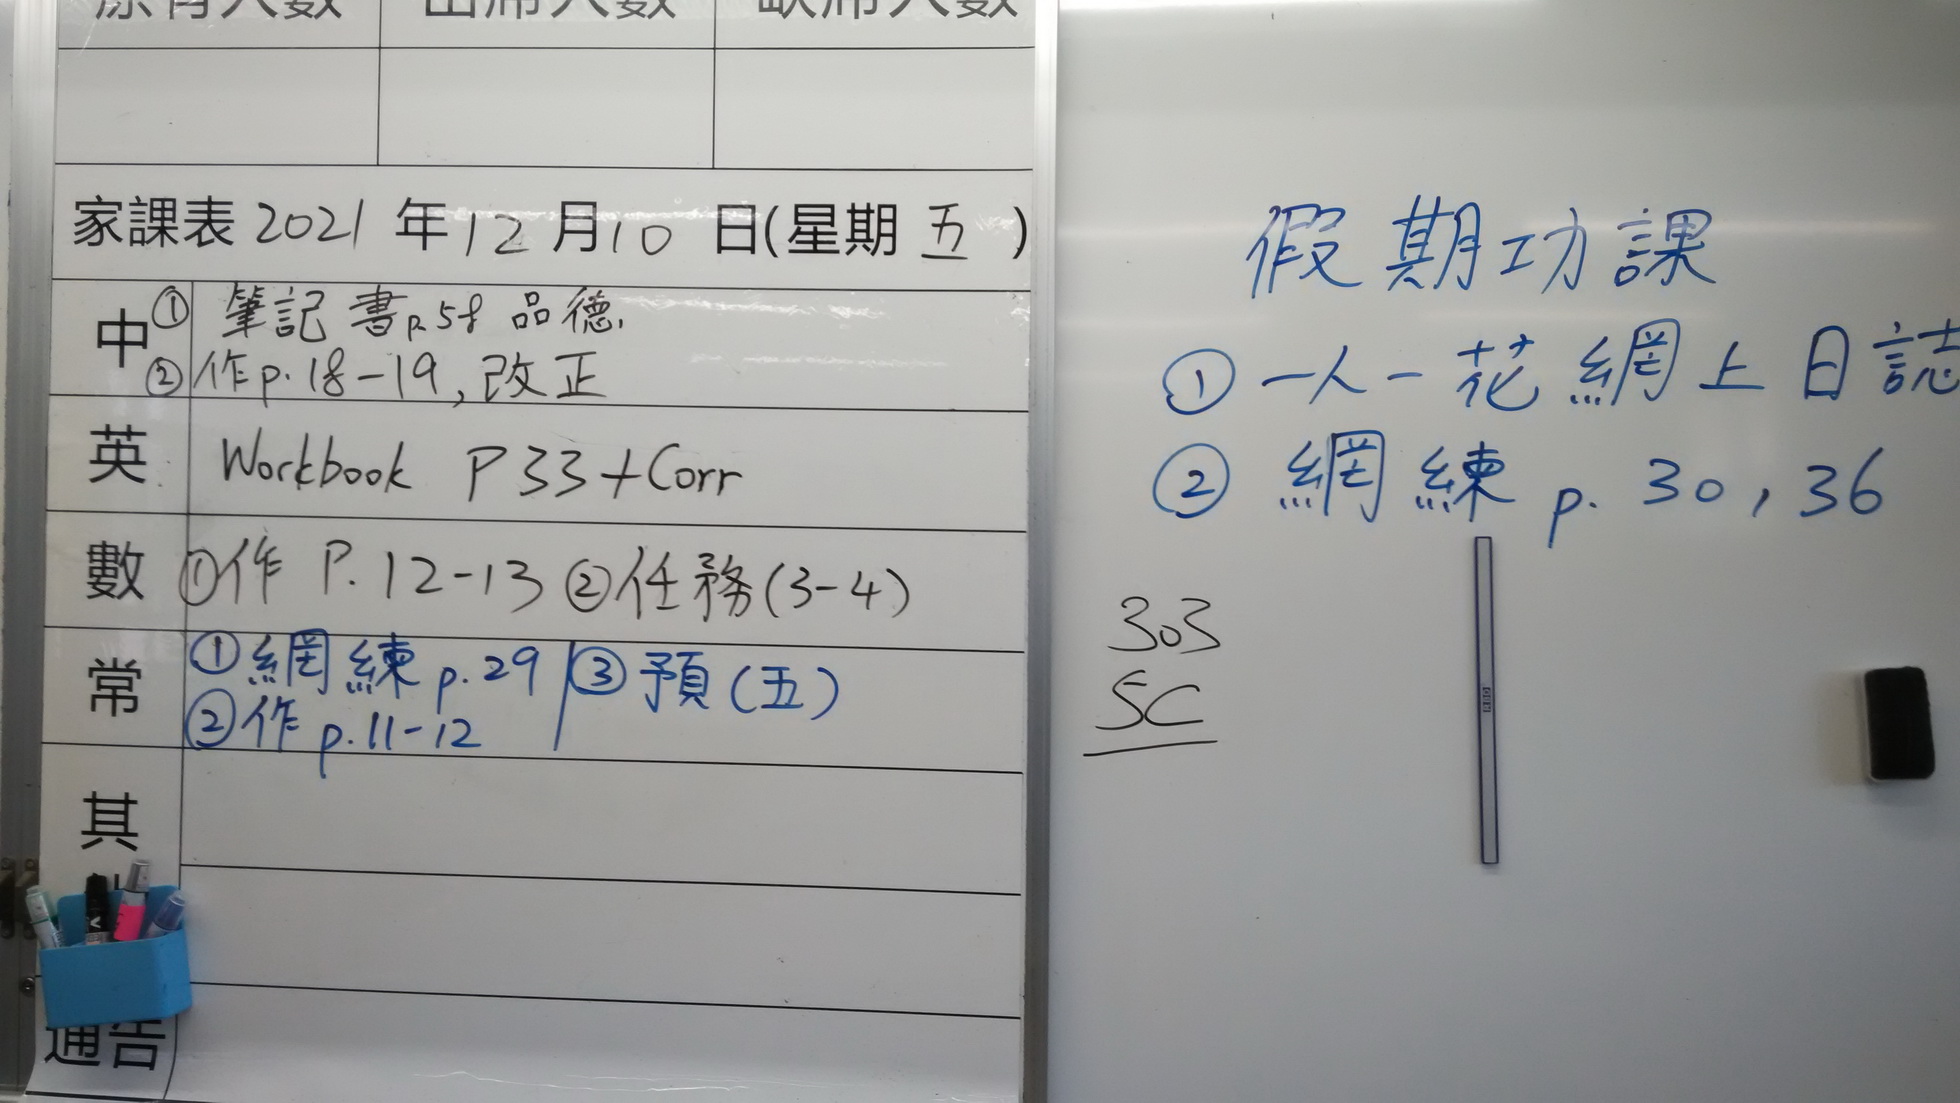 原有人數 出席人數 缺席人數
家課表 2021 年 12 月 10 日(星期 五 )
中 ① 筆記書p.58 品德.
② 作p.18-19, 改正
英 Workbook P33+Corr
數 ①作 P.12-13 ②任務(3-4)
常 ①網練p.29 ③預(五)
②作p.11-12
其
通告
假期功課
① 一人一花網上日誌
② 網練 p. 30, 36
303
5C